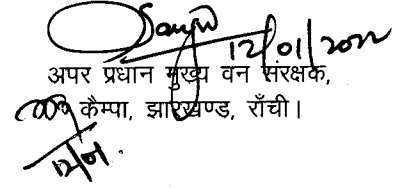 12/01/2022
अपर प्रधान मुख्य वन संरक्षक,
कैम्पा, झारखण्ड, राँची।
12/01.